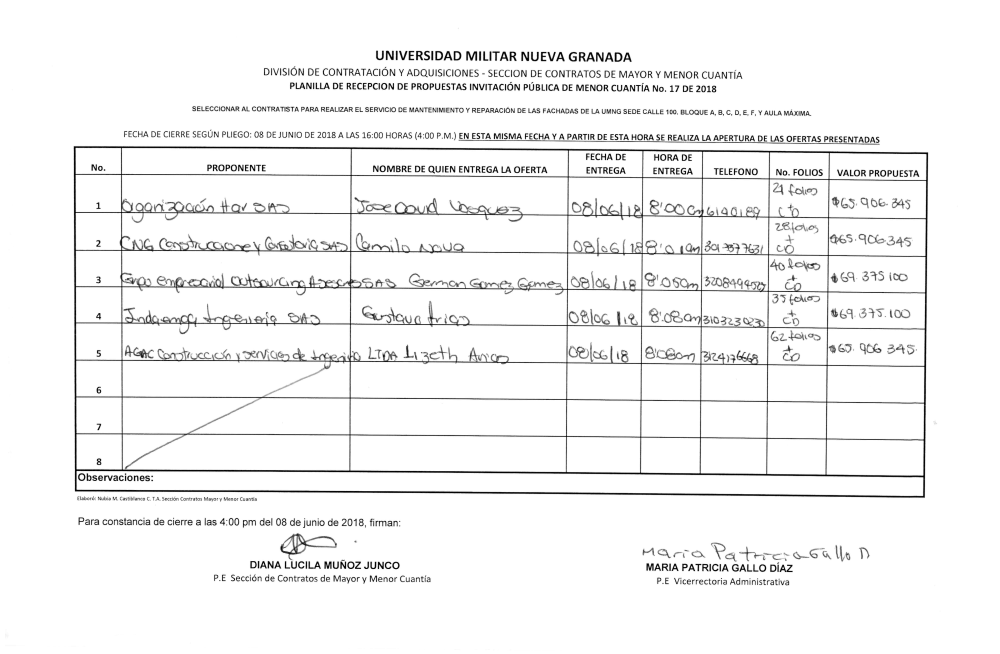 UNIVERSIDAD MILITAR NUEVA GRANADA
DIVISIÓN DE CONTRATACIÓN Y ADQUISICIONES - SECCION DE CONTRATOS DE MAYOR Y MENOR CUANTÍA
PLANILLA DE RECEPCION DE PROPUESTAS INVITACIÓN PÚBLICA DE MENOR CUANTÍA No. 17 DE 2018
SELECCIONAR AL CONTRATISTA PARA REALIZAR EL SERVICIO DE MANTENIMIENTO Y REPARACIÓN DE LAS FACHADAS DE LA UMNG SEDE CALLE 100. BLOQUE A, B, C, D, E, F, Y AULA MÁXIMA.
FECHA DE CIERRE SEGÚN PLIEGO: 08 DE JUNIO DE 2018 A LAS 16:00 HORAS (4:00 P.M.) EN ESTA MISMA FECHA Y A PARTIR DE ESTA HORA SE REALIZA LA APERTURA DE LAS OFERTAS PRESENTADAS
No. PROPONENTE NOMBRE DE QUIEN ENTREGA LA OFERTA FECHA DE ENTREGA HORA DE ENTREGA TELEFONO No. FOLIOS VALOR PROPUESTA
1 Organización Har SAS Jose David Vasquez 08/06/18 8:00am 6190189 21 folios CD $65.906.345
2 CNG Construcciones y SAS Camilo Nova 08/06/18 8:01am 28 folios + CD $65.906.345
3 Grupo empresarial Outsourcing Asesores SAS German Gomez Gomez 08/06/18 8:05am 40 folios + CD $69.375100
4 Ingeniería SAS Gustavo Arias 08/06/18 8:08am 3103230230 35 folios + CD $69.375.100
5 AGAC Construcción y servicios de Ingeniería LTDA Lizeth 08/06/18 8:08am 3124176668 62 folios + CD $65.906 345.
6
7
8
Observaciones:
Elaboró: Nubia M. Castiblanco C. T.A. Sección Contratos Mayor y Menor Cuantía
Para constancia de cierre a las 4:00 pm del 08 de junio de 2018, firman:
Maria Patricia Gallo D
DIANA LUCILA MUÑOZ JUNCO
MARIA PATRICIA GALLO DÍAZ
P.E Sección de Contratos de Mayor y Menor Cuantía
P.E Vicerrectoria Administrativa